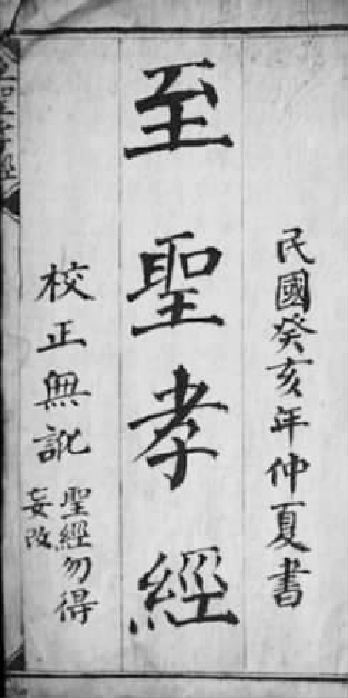 民國癸亥年仲夏書
至聖孝經
校正無訛
聖經勿得
妄改